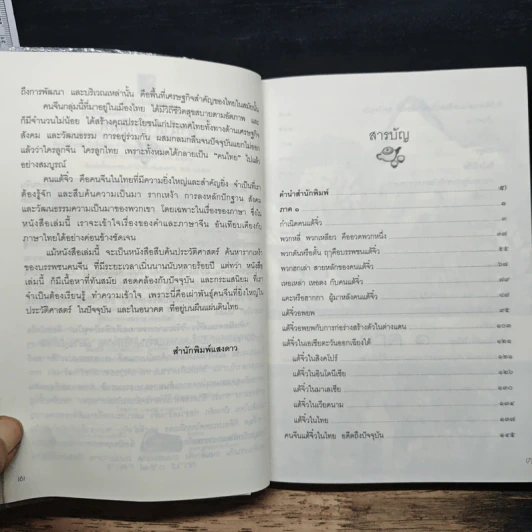 ถึงการพัฒนา และบริเวณเหล่านั้น คือพื้นที่เศรษฐกิจสำคัญของไทยในสมัยนั้น
คนจีนกลุ่มนี้ที่มาอยู่ในเมืองไทย ได้มีวิถีชีวิตสุขสบายตามอัตภาพ และ
ก็มีจำนวนไม่น้อย ได้สร้างคุณประโยชน์แก่ประเทศไทยทั้งทางด้านเศรษฐกิจ
สังคม และวัฒนธรรม การอยู่ร่วมกัน ผสมกลมกลืนจนปัจจุบันแยกไม่ออก
แล้วว่าใครลูกจีน ใครลูกไทย เพราะทั้งหมดได้กลายเป็น "คนไทย" ไปแล้ว
อย่างสมบูรณ์
คนแต้จิ๋ว คือคนจีนในไทยที่มีความยิ่งใหญ่และสำคัญยิ่ง จำเป็นที่เรา
ต้องรู้จัก และสืบค้นความเป็นมา รากเหง้า การลงหลักปักฐาน สังคม
และวัฒนธรรมความเป็นมาของพวกเขา โดยเฉพาะในเรื่องของภาษา ซึ่งใน
หนังสือเล่มนี้ เราจะเข้าใจเรื่องของคำและภาษาจีน อันเทียบเคียงกับ
ภาษาไทยได้อย่างค่อนข้างชัดเจน
แม้หนังสือเล่มนี้ จะเป็นหนังสือสืบค้นประวัติศาสตร์ ค้นหารากเหง้า
ของบรรพชนคนจีน ที่มีระยะเวลาเนิ่นนานนับหลายร้อยปี แต่ทว่า หนังสือ
เล่มนี้ ก็มีเนื้อหาที่ทันสมัย สอดคล้องกับปัจจุบัน และกระแสนิยม ที่เรา
จำเป็นต้องเรียนรู้ ทำความเข้าใจ เพราะนี่คือเผ่าพันธุ์คนจีนที่ยิ่งใหญ่ใน
ประวัติศาสตร์ ในปัจจุบัน และในอนาคต ที่อยู่บนผืนแผ่นดินไทย
สำนักพิมพ์แสงดาว
(๖)
สารบัญ
คำนำสำนักพิมพ์ (๕)
ภาค ๑ ๑
กำเนิดคนแต้จิ๋ว ๓
พวกหลี่ พวกเหลียว คืออวดพวกหนึ่ง ๓๗
พวกตันหรือตั้น ฤๅคือบรรพชนแต้จิ๋ว ๕๕
พวกฮกเล่า สายหลักของคนแต้จิ๋ว
เหอเหล่า เหอตง กับคนแต้จิ๋ว
แคะหรือฮากกา ผู้มาหลังคนแต้จิ๋ว
แต้จิ๋วอพยพ ๙๕
แต้จิ๋วอพยพกับการก่อร่างสร้างตัวในต่างแดน
แต้จิ๋วในเอเชียตะวันออกเฉียงใต้ ๑๒๑
แต้จิ๋วในสิงคโปร์
แต้จิ๋วในอินโดนีเซีย ๑๒๖
แต้จิ๋วในมาเลเซีย ๑๓๐
แต้จิ๋วในเวียดนาม ๑๓๔
แต้จิ๋วในไทย
คนจีนแต้จิ๋วในไทย อดีตถึงปัจจุบัน ๑๔๕